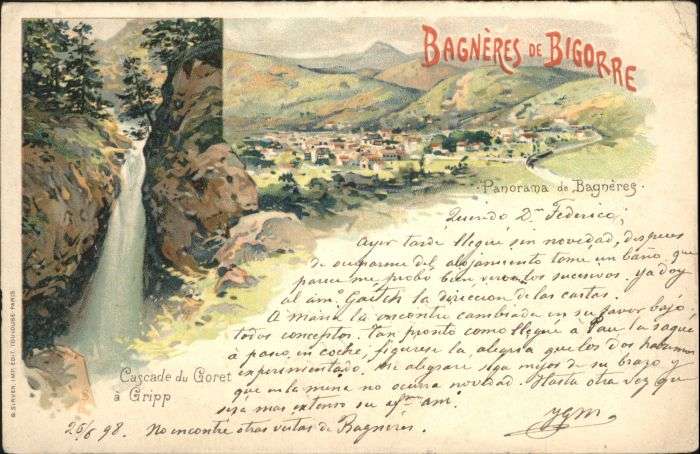 BAGNÈRES DE BIGORRE
Panorama de Bagnères.
Querido Dn Federico;
Ayer tarde llegué sin novedad, despues
de ocuparme del alojamiento tome un baño, que
parece me probó bien veremos los sucesivos. ya doy
al am. la direccion de las cartas.
A Maria la encontre cambiada en su favor bajo
todos conceptos. Tan pronto como llegue a Pau la saque
á paseo, en coche, figurese la alegria que los dos habremos
experimentado. Me alegrare siga mejor de su brazo y
que en la mina no ocurra novedad. Hasta otra vez que
sera mas extenso su afmo am.
JGM
Cascade du Goret
à Gripp
25/6 98. No encontré otras vistas de Bagnéres.
G. SIRVEN. IMP. EDIT. TOULOUSE-PARIS